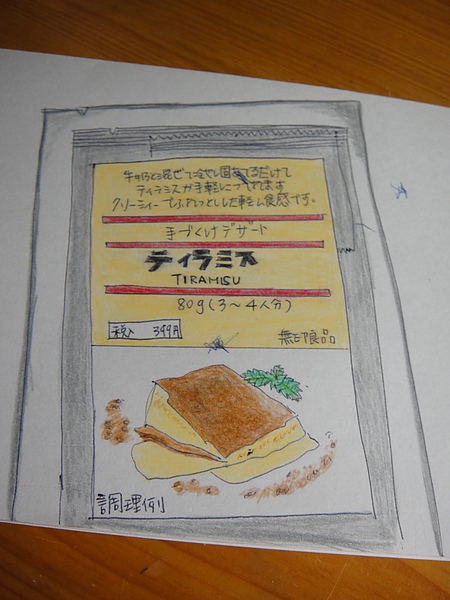 牛乳と混ぜて冷やし固めてるだけで
ティラミスが手軽につくれます
クリーミィーでふわっとした軽い食感です。
手づくりデザート
ティラミス
TIRAMISU
80g(3〜4人分)
税込 399円
無印良品
調理例